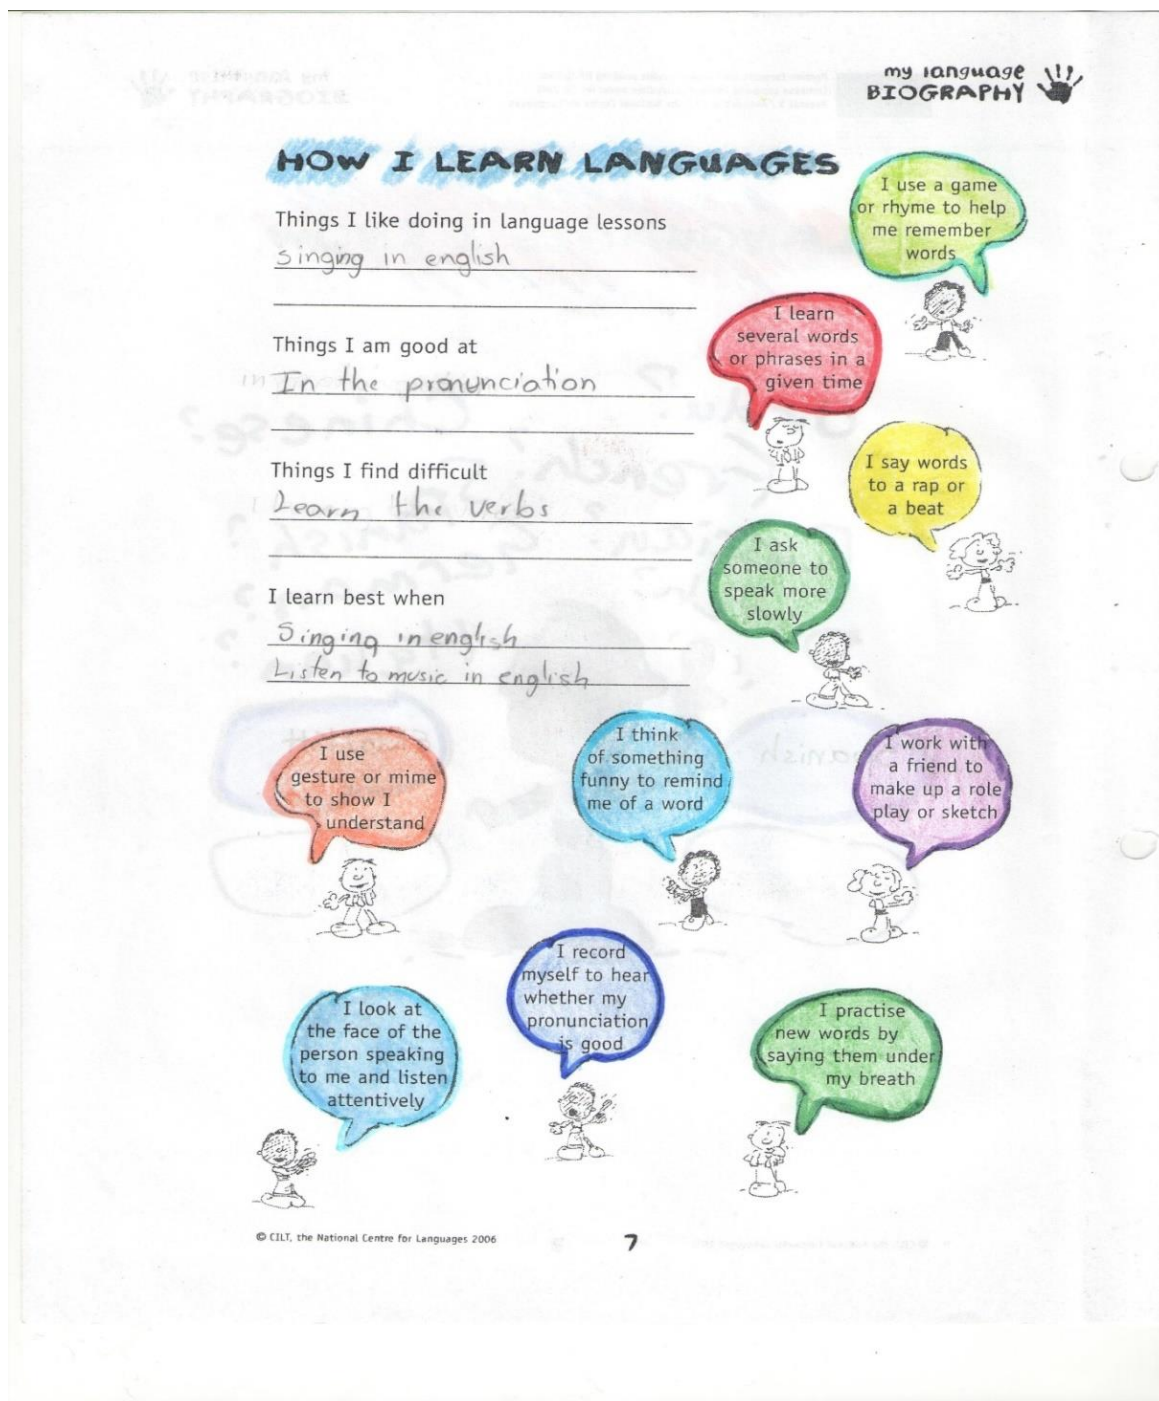 my language
BIOGRAPHY
HOW I LEARN LANGUAGES
Things I like doing in language lessons
singing in english
Things I am good at
In the pronunciation
Things I find difficult
Learn the verbs
I learn best when
Singing in english
Listen to music in english
I use a game
or rhyme to help
me remember
words
I learn
several words
or phrases in a
given time
I say words
to a rap or
a beat
I ask
someone to
speak more
slowly
I use
gesture or mime
to show I
understand
I think
of something
funny to remind
me of a word
I work with
a friend to
make up a role
play or sketch
I look at
the face of the
person speaking
to me and listen
attentively
I record
myself to hear
whether my
pronunciation
is good
I practise
new words by
saying them under
my breath
© CILT, the National Centre for Languages 2006
7